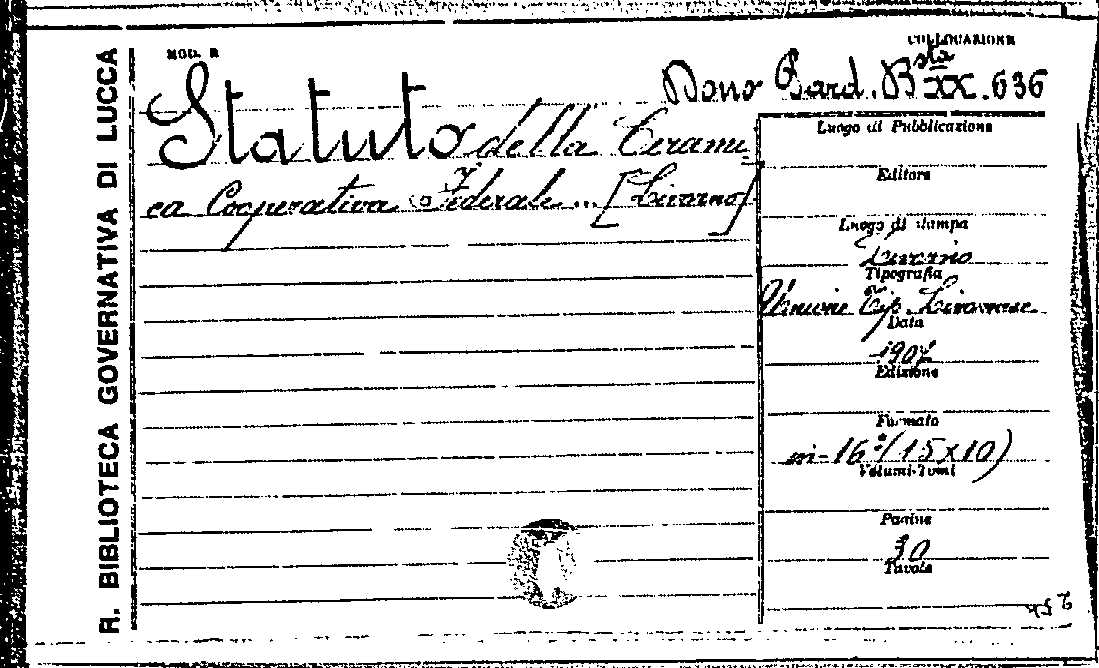 R. BIBLIOTECA GOVERNATIVA DI LUCCA
MOD. R
COLLOCAZIONE
Dono Bard. Bsta XX. 636
Statuto della Cerami=
ca Cooperativa Federale... [Livorno]
Luogo di Pubblicazione
Editore
Luogo di stampa
Livorno
Tipografia
Unione Tip. Livornese
Data
1907
Edizione
Formato
in-16º (15x10)
Volumi-Tomi
Pagine
30
Tavole